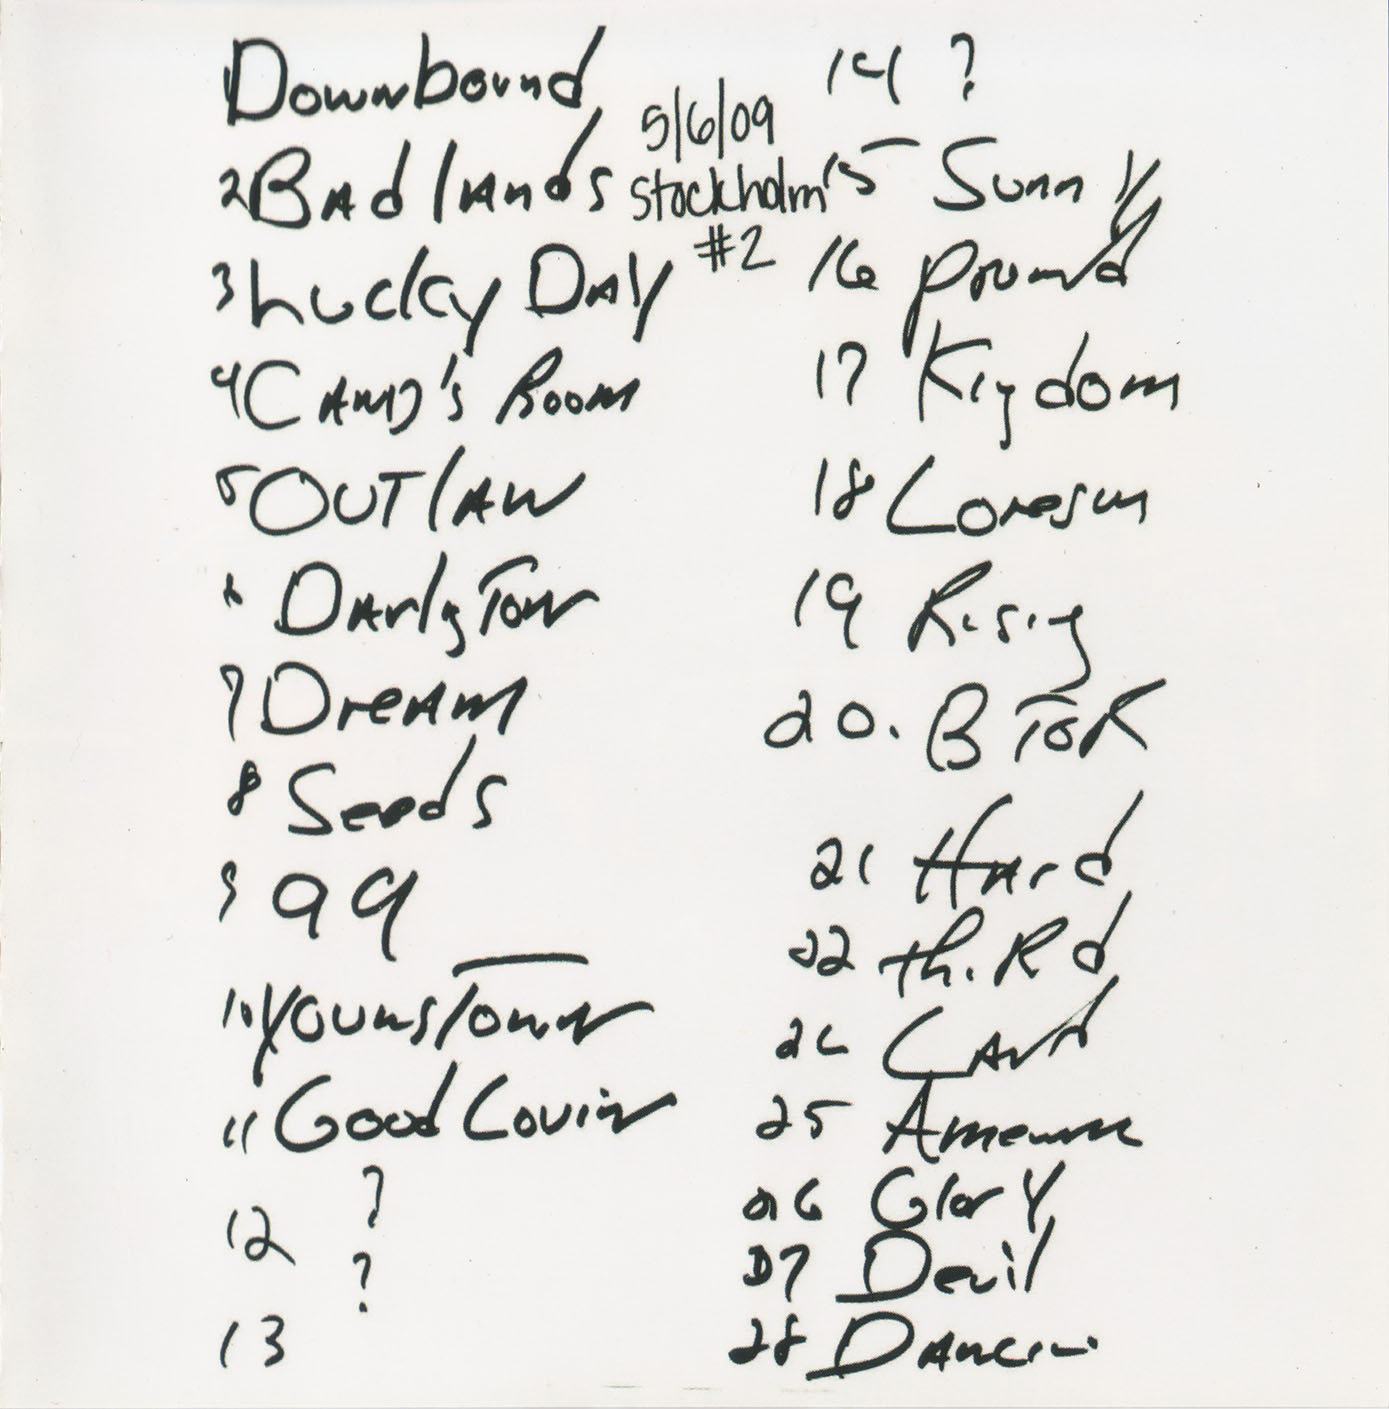 1 Downbound
2 Badlands
3 Lucky Day
4 Candy's Room
5 Outlaw
6 Darlg Town
7 Dream
8 Seeds
9 99
10 Youngstown
11 Good Lovin
12 ?
13 ?
5/6/09
Stockholm
#2
14 ?
15 Sunny
16 Promd
17 Kigdom
18 Lonesom
19 Rising
20. B To R
21 Hard
22 thiRd
24 Land
25 American
26 Glory
27 Devil
28 Dancin